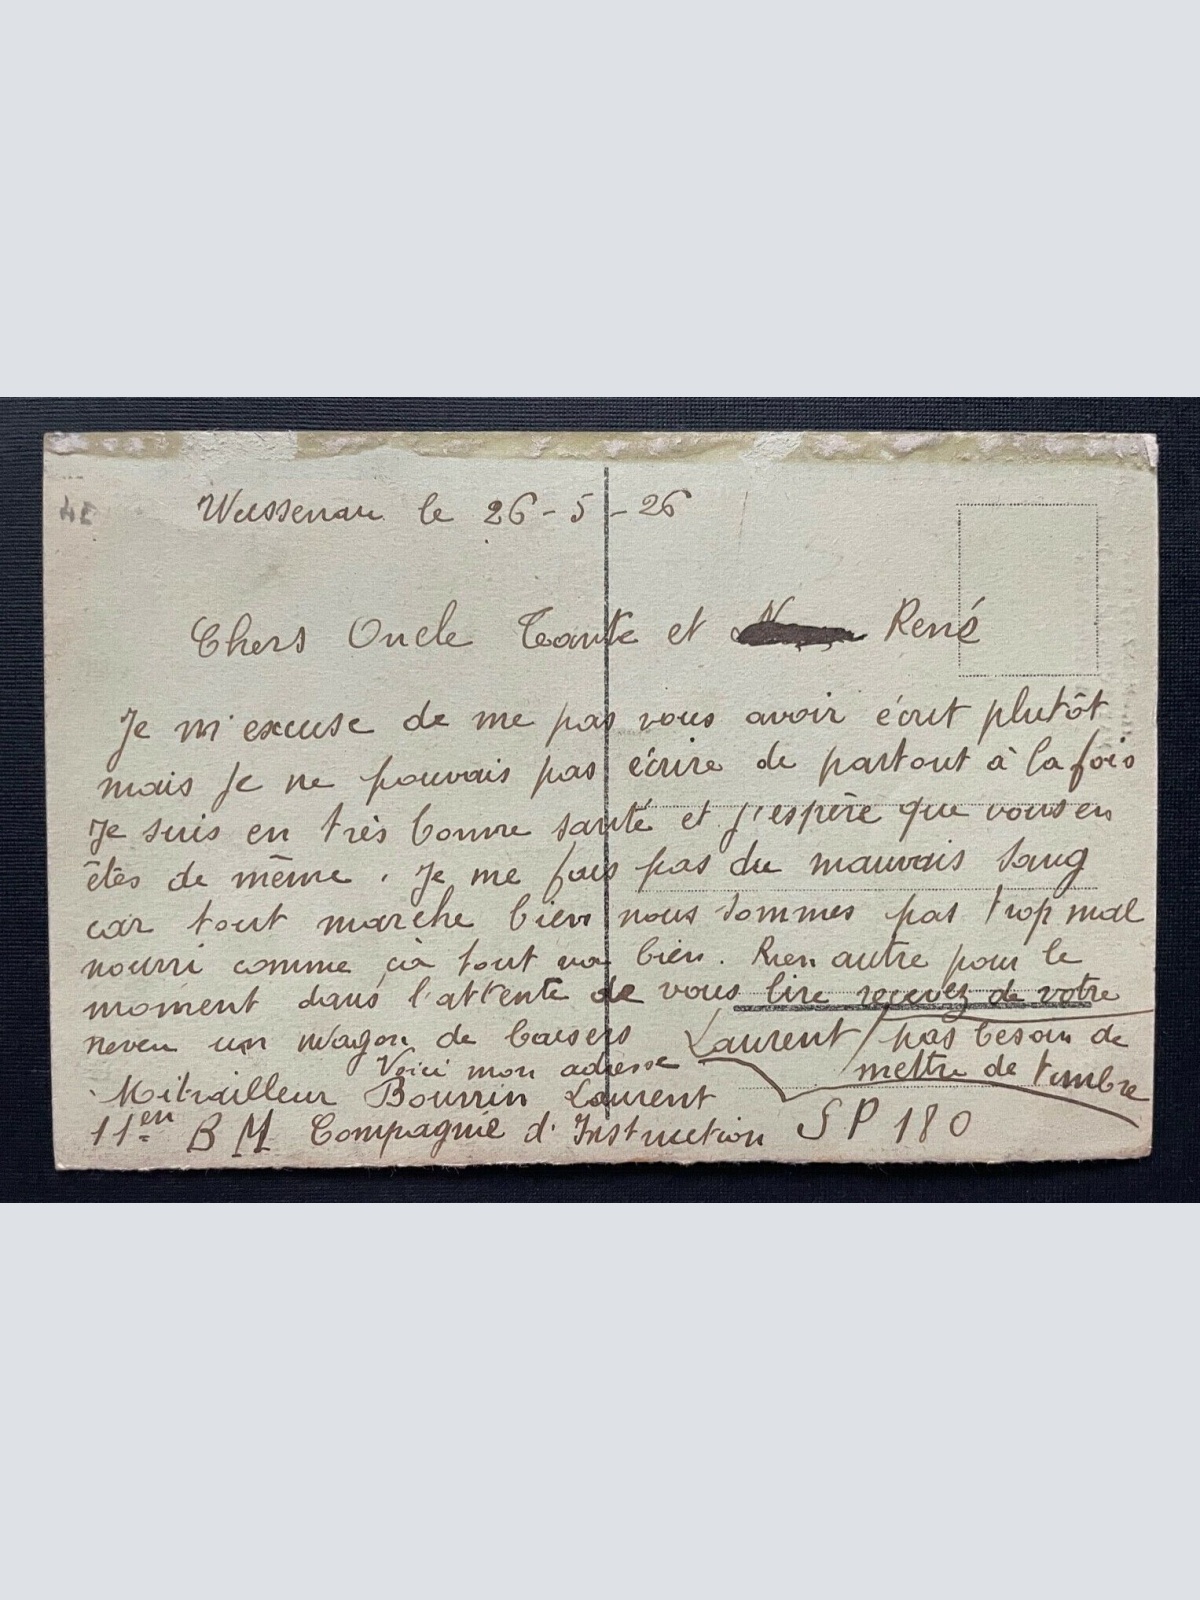 Wussenau le 26-5-26
Chers Oncle Tante et René
Je m'excuse de me pas vous avoir écrit plutôt
mais je ne pouvais pas écrire de partout à la fois
Je suis en très bonne santé et j'espère que vous en
êtes de même. Je me fais pas du mauvais sang
car tout marche bien nous sommes pas trop mal
nourri comme çà tout va bien. Rien autre pour le
moment dans l'attente de vous lire recevez de votre
neveu un wagon de baisers Laurent / pas besoin de
mettre de timbre
Voici mon adresse
Mitrailleur Bourrin Laurent
11en BM Compagnie d'Instruction SP 180